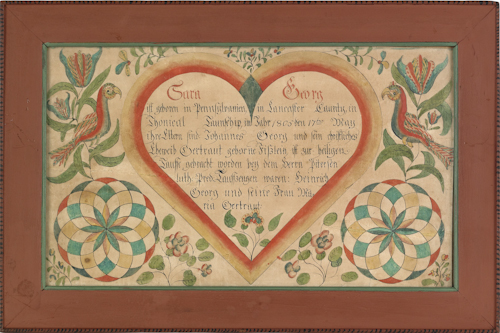 Sara Georg
ist geboren in Pennsylvanien, in Lancaster Caunty, in
Taunship im Jahr 1805 den 17ten May
ihre Eltern sind Johannes Georg und sein ehrliches
Eheweib Gertraut geborne ist zur heiligen
Taufe gebracht worden bey dem Herrn Petersen
luth. Pred. Taufzeugen waren: Heinrich
Georg und seine Frau Ma-
ria Gertraut